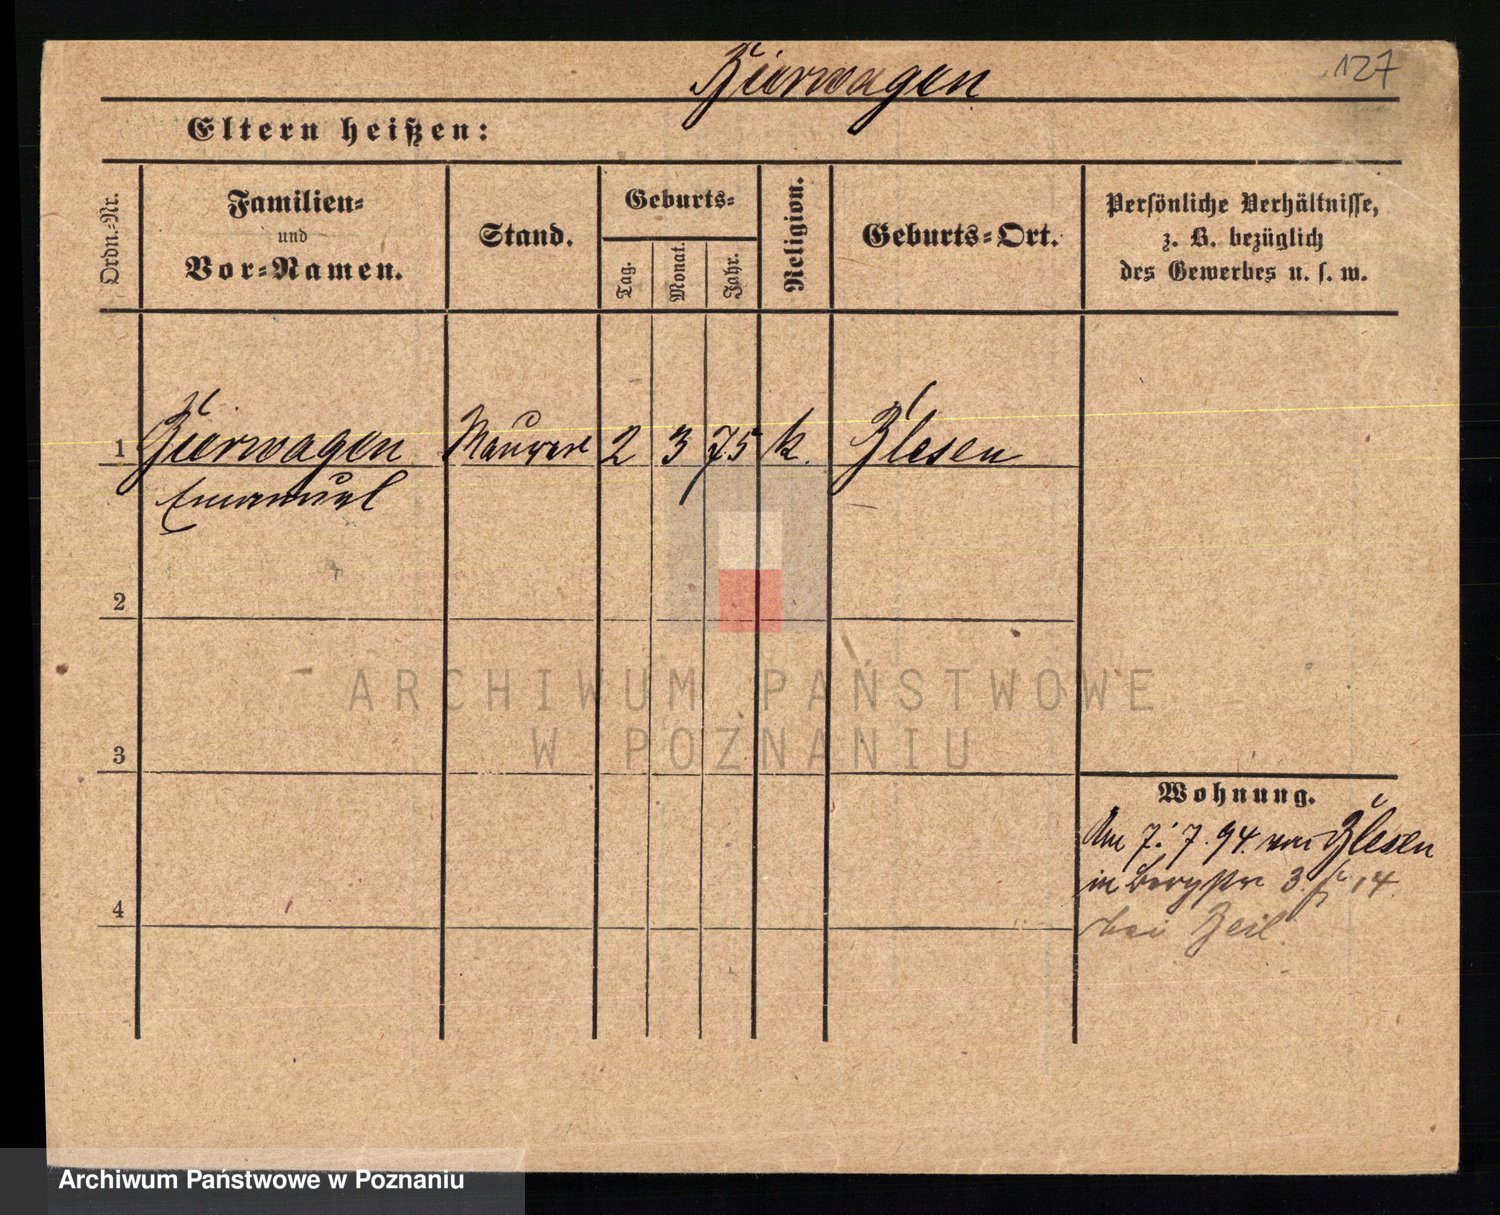 Bierwagen
127
Eltern heißen:
Ordn.-Nr.
Familien-
und
Vor-Namen.
Stand.
Geburts-
Tag.
Monat.
Jahr.
Religion.
Geburts-Ort.
Persönliche Verhältnisse,
z. B. bezüglich
des Gewerbes u. s. w.
1 Bierwagen Maurer 2 3 75 k. Blesen
Emanuel
2
3
4
Wohnung.
Am 7. 7. 94. von Blesen
in Bergstr 3 14
bei Zeil
ARCHIWUM PAŃSTWOWE
W POZNANIU
Archiwum Państwowe w Poznaniu